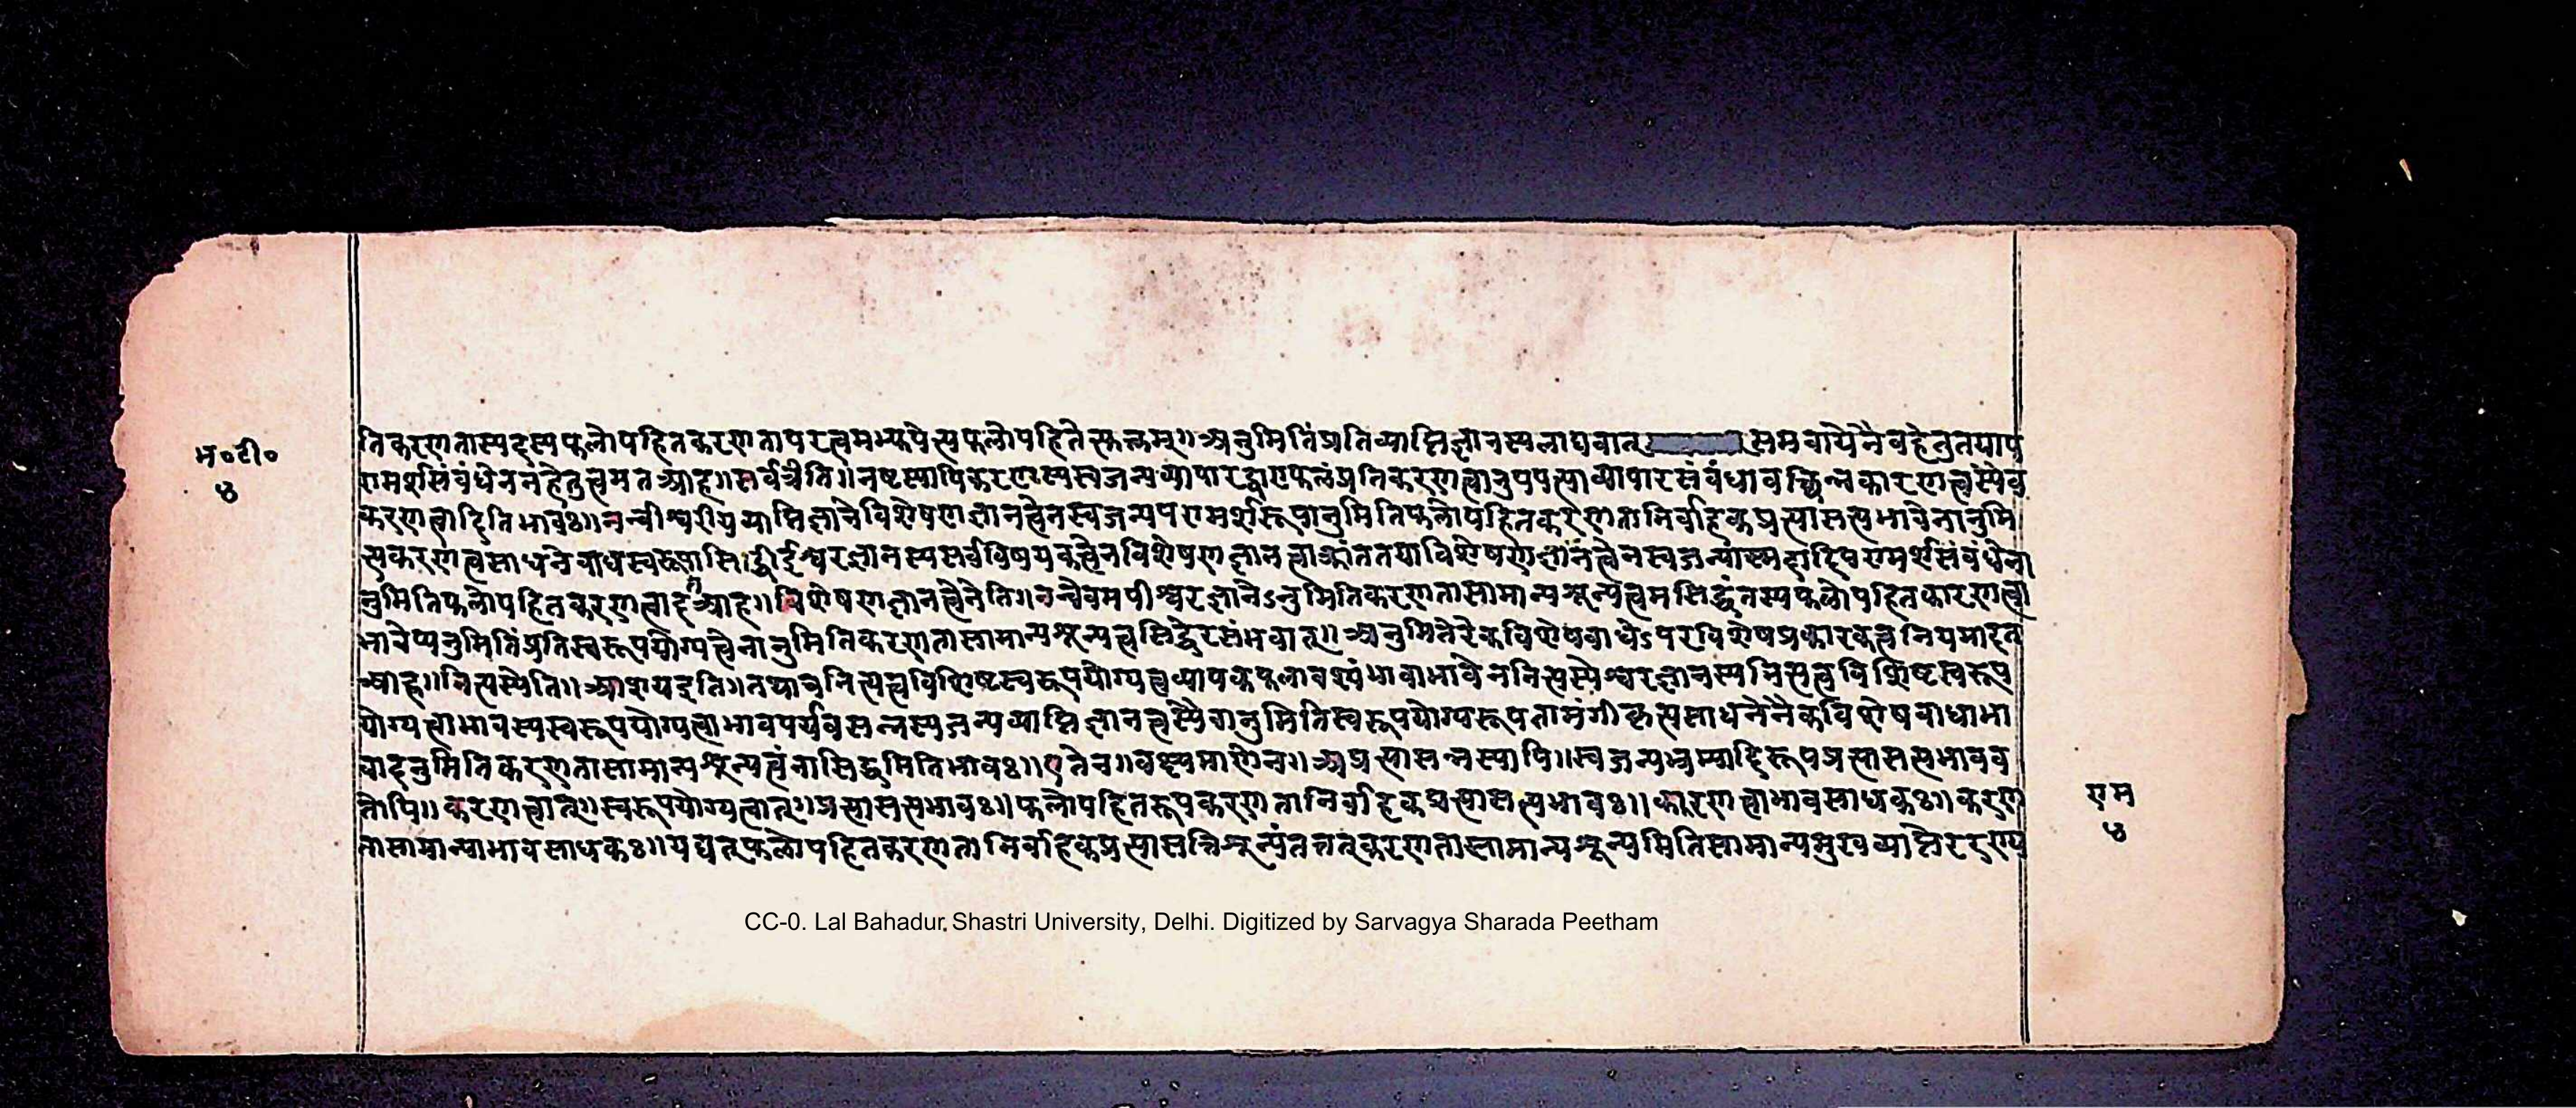 भ०टी०
४
तिकरणतास्पदस्यफलोपहितकरणतापरत्वमभ्युपेत्यफलोपहितेत्युक्तम्॥अनुमितिंप्रतिव्याप्तिज्ञानस्यलाघवात् समवायेनैवहेतुतयाप
रामर्शसंबंधेननहेतुत्वमतआह॥सर्वत्रेति॥नष्टस्यापिकरणस्यस्वजन्यव्यापारद्वाराफलंप्रतिकरणत्वानुपपत्त्याव्यापारसंबंधावच्छिन्नकारणत्वस्यैव
करणत्वादितिभावः॥नन्वीश्वरीयव्याप्तिज्ञानेविशेषणज्ञानत्वेनस्वजन्यपरामर्शरूपानुमितिफलोपहितकरणतानिर्वाहकप्रत्यासत्यभावेनानुमि
त्यकरणत्वसाधने ईश्वरज्ञानस्यसर्वविषयकत्वेनविशेषणज्ञानत्वाक्रांततयाविशेषणज्ञानत्वेनस्वजन्यास्मदादिपरामर्शसंबंधेना
नुमितिफलोपहितकरणत्वादतआह॥विशेषणज्ञानत्वेनेति॥नन्वेवमपीश्वरज्ञानेऽनुमितिकरणतासामान्यशून्यत्वमसिद्धंतस्यफलोपहितकारणत्वा
भावेप्यनुमितिंप्रतिस्वरूपयोग्यत्वेनानुमितिकरणतासामान्यशून्यत्वसिद्धेरसंभवात्॥अनुमितेरेकविशेषबाधेऽपरविशेषप्रकारकत्वनियमादत
आह॥नित्यस्येति॥आशयइति॥तथाचनित्यत्वविशिष्टस्वरूपयोग्यत्वव्यापकफलावश्यंभावाभावेननित्यस्येश्वरज्ञानस्यनित्यत्वविशिष्टस्वरूप
योग्यत्वाभावस्यस्वरूपयोग्यत्वाभावपर्यवसन्नस्यजन्यव्याप्तिज्ञानत्वस्यैवानुमितिस्वरूपयोग्यरूपतामंगीकृत्यसाधनेनैकविशेषबाधाभा
वादनुमितिकरणतासामान्यशून्यत्वंनासिद्धमितिभावः॥एतेन॥वक्ष्यमाणेन॥अप्रत्यासन्नस्यापि॥स्वजन्यभ्रम्यादिरूपप्रत्यासत्यभावव
तोपि॥करणत्वात्॥स्वरूपयोग्यत्वात्॥प्रत्यासत्यभावः॥फलोपहितरूपकरणतानिर्वाहकप्रत्यासत्यभावः॥कारणत्वाभावसाधकः॥करण
तासामान्याभावसाधकः॥यद्यत्फलोपहितकरणतानिर्वाहकप्रत्यासत्तिशून्यंतत्तत्करणतासामान्यशून्यमितिसामान्यमुखव्याप्तेररण्य
राम
४
CC-0. Lal Bahadur Shastri University, Delhi. Digitized by Sarvagya Sharada Peetham